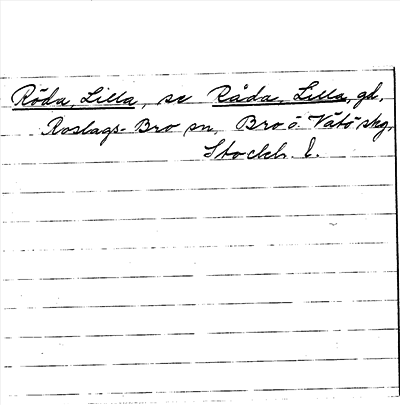 Röda, Lilla, se Råda, Lilla, gd,
Roslags-Bro sn, Bro o. Vätö skg,
Stockh. l.